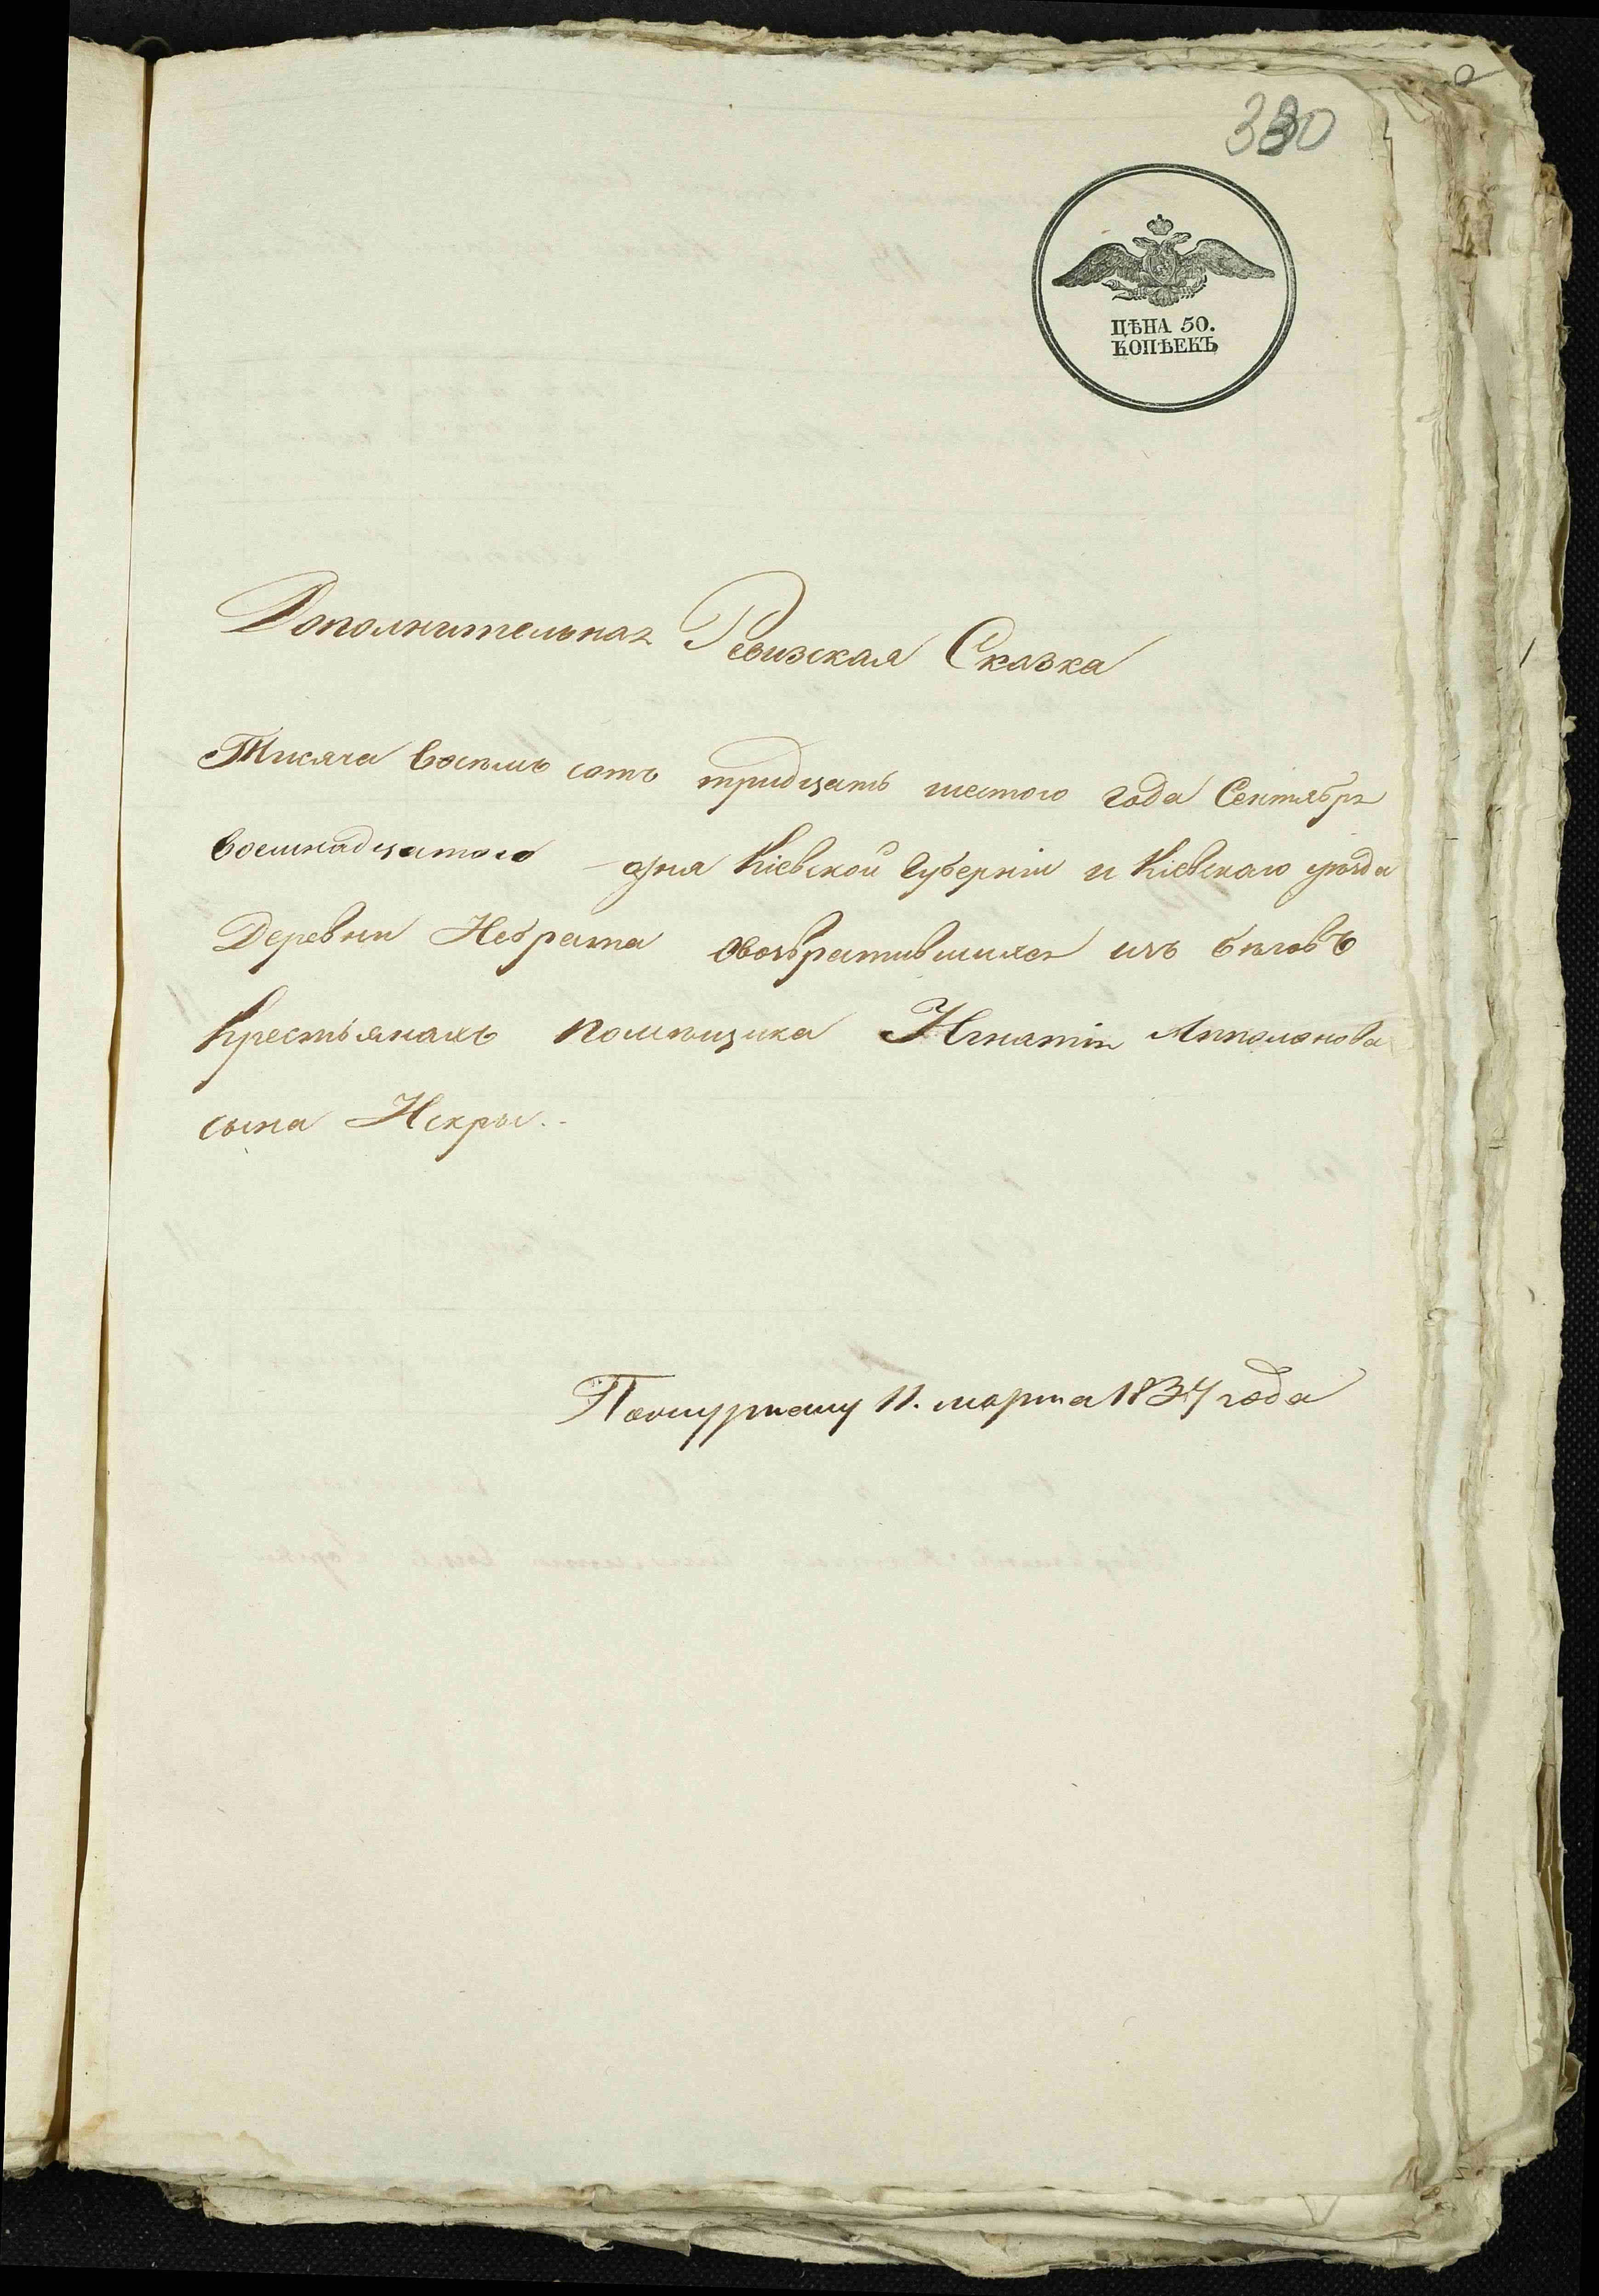 330
ЦѢНА 50.
КОПѢЕКЪ
Дополнительная Ревизская Сказка
Тисяча восемь сотъ тридцать шестого года Сентября
восемнадцатого дня Кіевской Губерніи и Кіевскаго уѣзда
Деревни Небрата овозвратившихся изъ бѣговъ
Крестьянахъ помѣщика Игнатія
сына Искры.
11. марта 1837 года